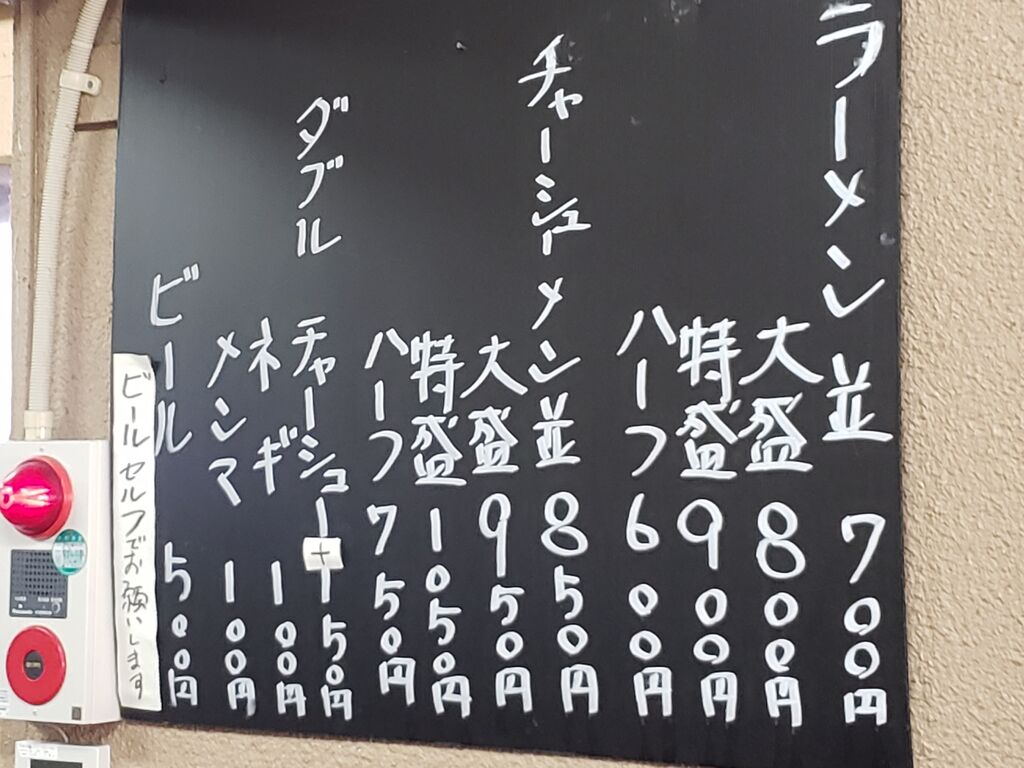 ラーメン並 700円
大盛 800円
特盛 900円
ハーフ 600円
チャーシューメン並 850円
大盛 950円
特盛 1050円
ハーフ 750円
ダブルチャーシュー+150円
ネギ 100円
メンマ 100円
ビール 500円
ビールセルフでお願いします